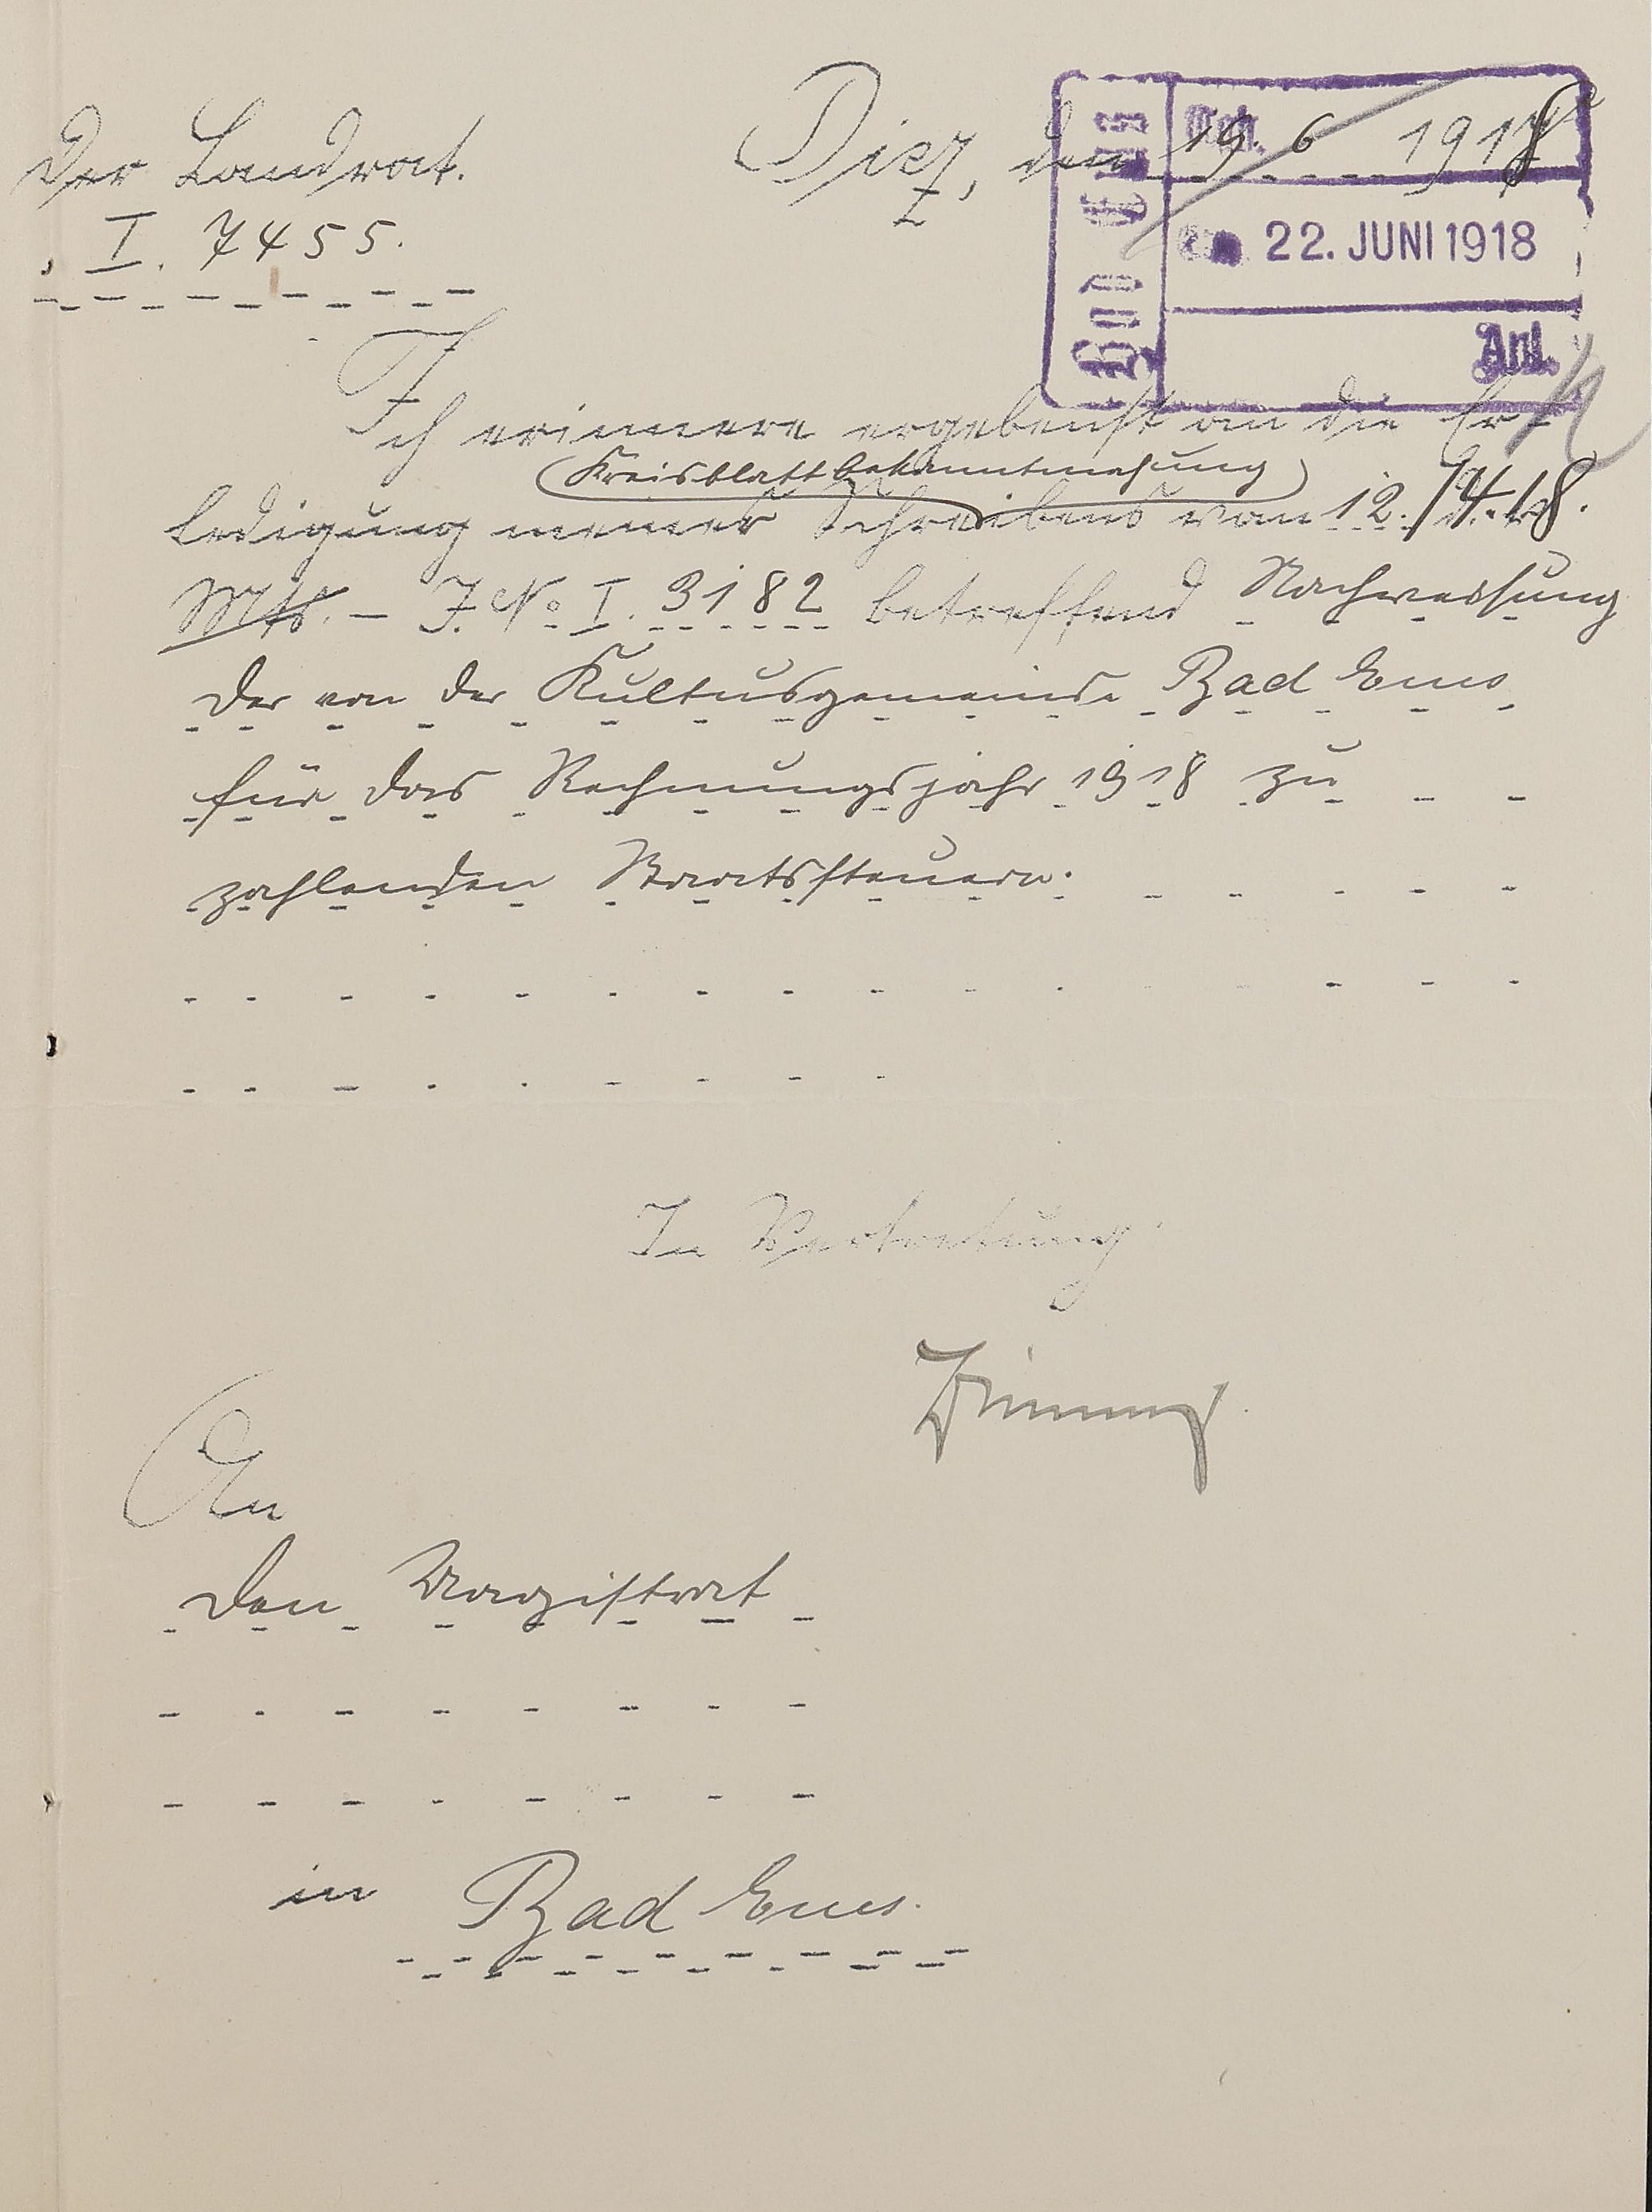 Der Landrat.
I. 7455.
Diez, den 19. 6 1918
Bad Ems
22. JUNI 1918
Anl.
Ich erinnere ergebenst an die Er-
(Kreisblattbekanntmachung)
ledigung meines Schreibens vom 12./4.18.
Mts. – J. No. I. 3182 betreffend Nachweisung
der von der Kultusgemeinde Bad Ems
für das Rechnungsjahr 1918 zu
zahlenden Staatssteuern.
In Vertretung
An
den Magistrat
in Bad Ems.